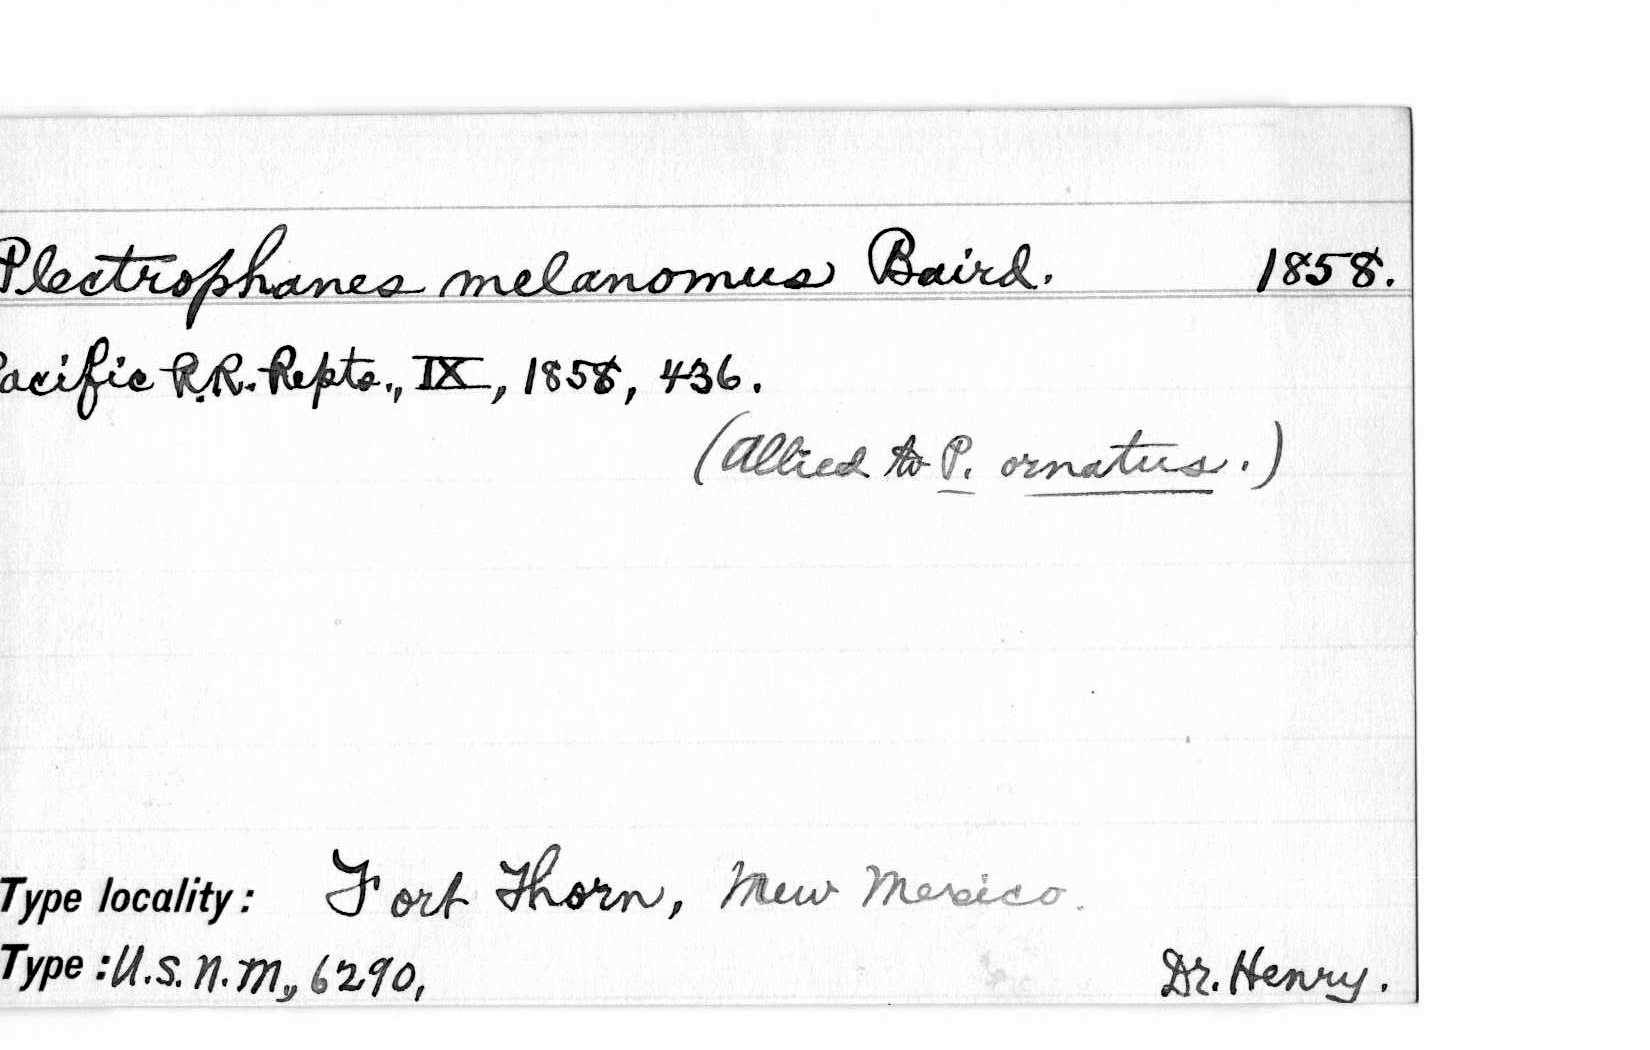 Plectrophanes melanomus Baird. 1858.
Pacific R.R. Repts., IX, 1858, 436.
(Allied to P. ornatus.)
Type locality: Fort Thorn, New Mexico.
Type: U.S.N.M., 6290, Dr. Henry.